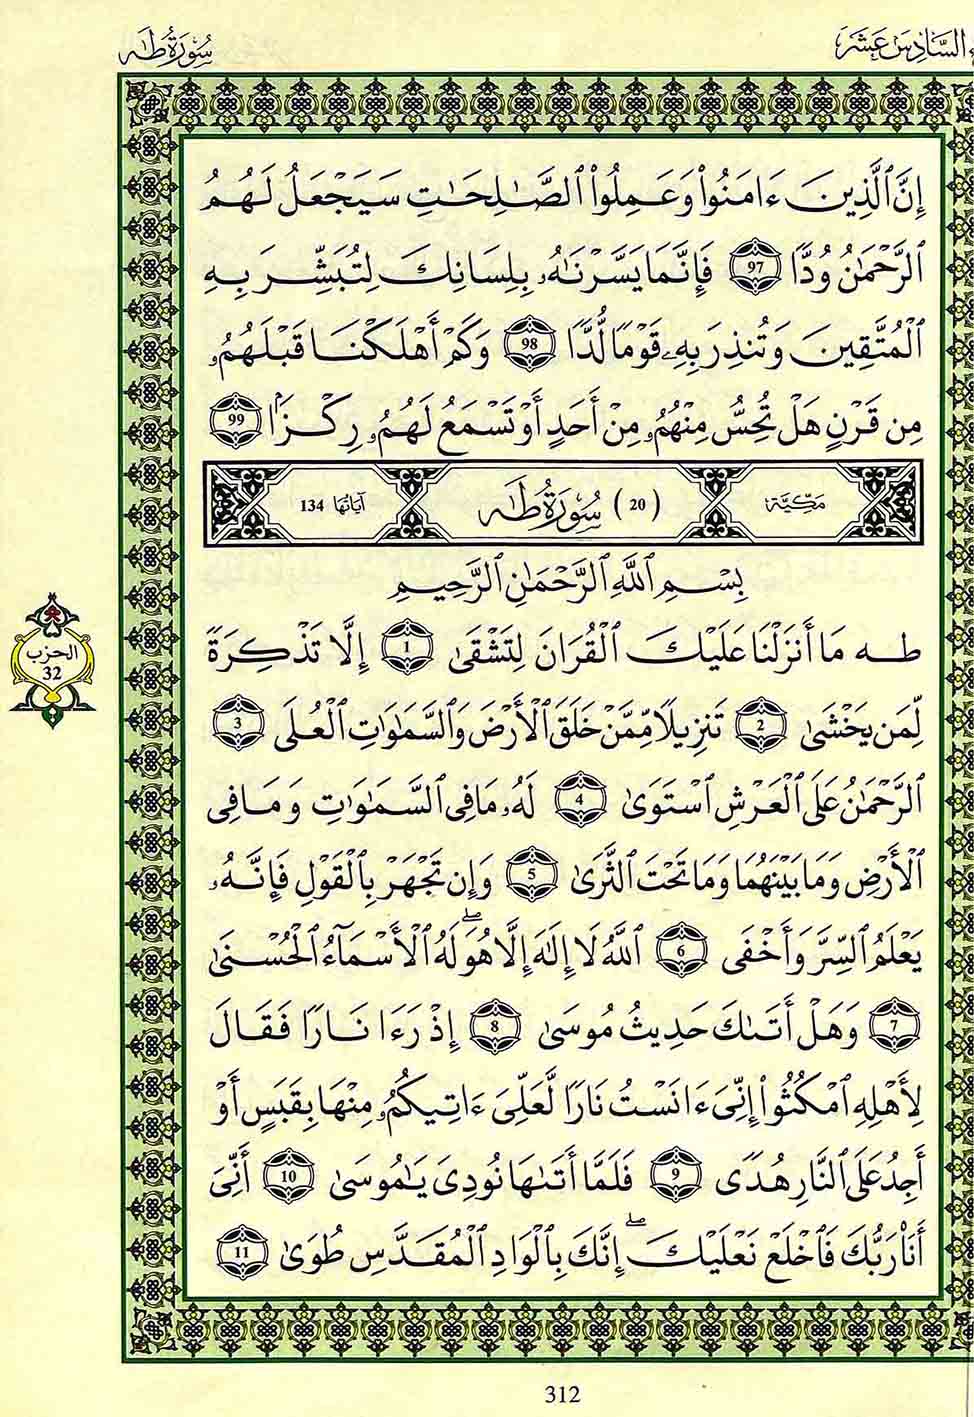 السَّادِسَ عَشَرَ
سُورَةُ طَهَ
إِنَّ اَ۬لَّذِينَ ءَامَنُواْ وَعَمِلُواْ اُ۬لصَّٰلِحَٰتِ سَيَجْعَلُ لَهُمُ
اُ۬لرَّحْمَٰنُ وُدًّا 97 فَإِنَّمَا يَسَّرْنَٰهُ بِلِسَانِكَ لِتُبَشِّرَ بِهِ
اِ۬لْمُتَّقِينَ وَتُنذِرَ بِهِۦ قَوْمًا لُّدًّا 98 وَكَمْ أَهْلَكْنَا قَبْلَهُمُۥ
مِن قَرْنٍ هَلْ تُحِسُّ مِنْهُمُۥ مِنْ أَحَدٍ أَوْ تَسْمَعُ لَهُمُۥ رِكْزًا 99
مَكِّيَّة (20) سُورَةُ طَهَ آيَاتُهَا 134
بِسْمِ اِ۬للَّهِ اِ۬لرَّحْمَٰنِ اِ۬لرَّحِيمِ
طه مَا أَنزَلْنَا عَلَيْكَ اَ۬لْقُرَانَ لِتَشْقَىٰ 1 إِلَّا تَذْكِرَةً
لِّمَن يَخْشَىٰ 2 تَنزِيلًا مِّمَّنْ خَلَقَ اَ۬لْأَرْضَ وَالسَّمَٰوَٰتِ اِ۬لْعُلَى 3
اَ۬لرَّحْمَٰنُ عَلَى اَ۬لْعَرْشِ اِ۪سْتَوَىٰ 4 لَهُۥ مَا فِي اِ۬لسَّمَٰوَٰتِ وَمَا فِي
اِ۬لْأَرْضِ وَمَا بَيْنَهُمَا وَمَا تَحْتَ اَ۬لثَّرَىٰ 5 وَإِن تَجْهَرْ بِالْقَوْلِ فَإِنَّهُۥ
يَعْلَمُ اُ۬لسِّرَّ وَأَخْفَى 6 اَ۬للَّهُ لَا إِلَٰهَ إِلَّا هُوَۖ لَهُ اُ۬لْأَسْمَآءُ اُ۬لْحُسْنَىٰ
7 وَهَلْ أَتَىٰكَ حَدِيثُ مُوسَىٰ 8 إِذْ رَءَا نَارًا فَقَالَ
لِأَهْلِهِ اِ۟مْكُثُواْ إِنِّيَ ءَانَسْتُ نَارًا لَّعَلِّيَ ءَاتِيكُمُۥ مِنْهَا بِقَبَسٍ أَوْ
أَجِدُ عَلَى اَ۬لنَّارِ هُدًى 9 فَلَمَّا أَتَىٰهَا نُودِيَ يَٰمُوسَىٰ 10 أَنِّيَ
أَنَا رَبُّكَ فَاخْلَعْ نَعْلَيْكَۖ إِنَّكَ بِالْوَادِ اِ۬لْمُقَدَّسِ طُوَىٰ 11
الحزب
32
312